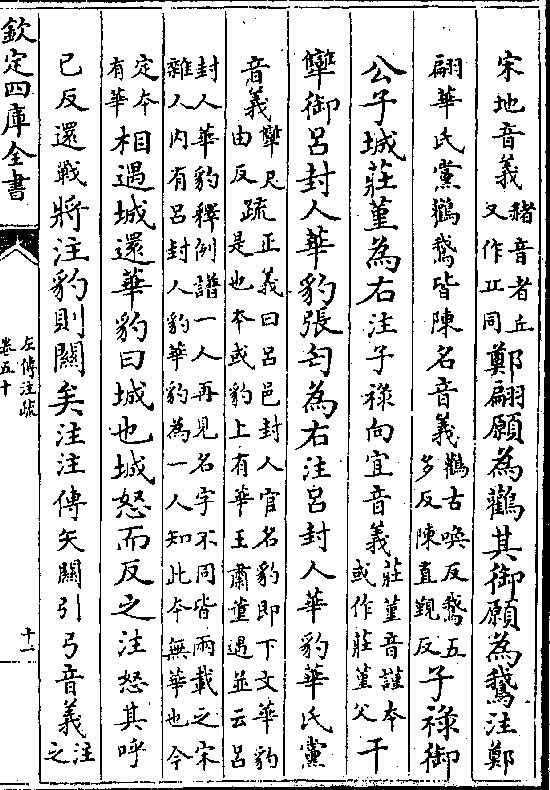 宋地音義赭音者丘又作㐀同鄭翩願為鸛其御願為鵝注鄭
翩華氏黨鸛鵝皆陳名音義鸛古喚反鵝五多反陳直覲反子祿御
公子城莊堇為右注子祿向宜音義莊堇音謹本或作莊堇父干
犫御呂封人華豹張匄為右注呂封人華豹華氏黨
音義犫尺由反疏正義曰呂邑封人官名豹即下文華豹是也本或豹上有華王肅董遇並云呂
封人華豹釋例譜一人再見名字不同皆兩載之宋雜人內有呂封人豹華豹為一人知此本無華也今
定本有華相遇城還華豹曰城也城怒而反之注怒其呼
已反還戰將注豹則關矣注注傳矢關引弓音義注之
欽定四庫全書
左傳注疏
卷五十
十一